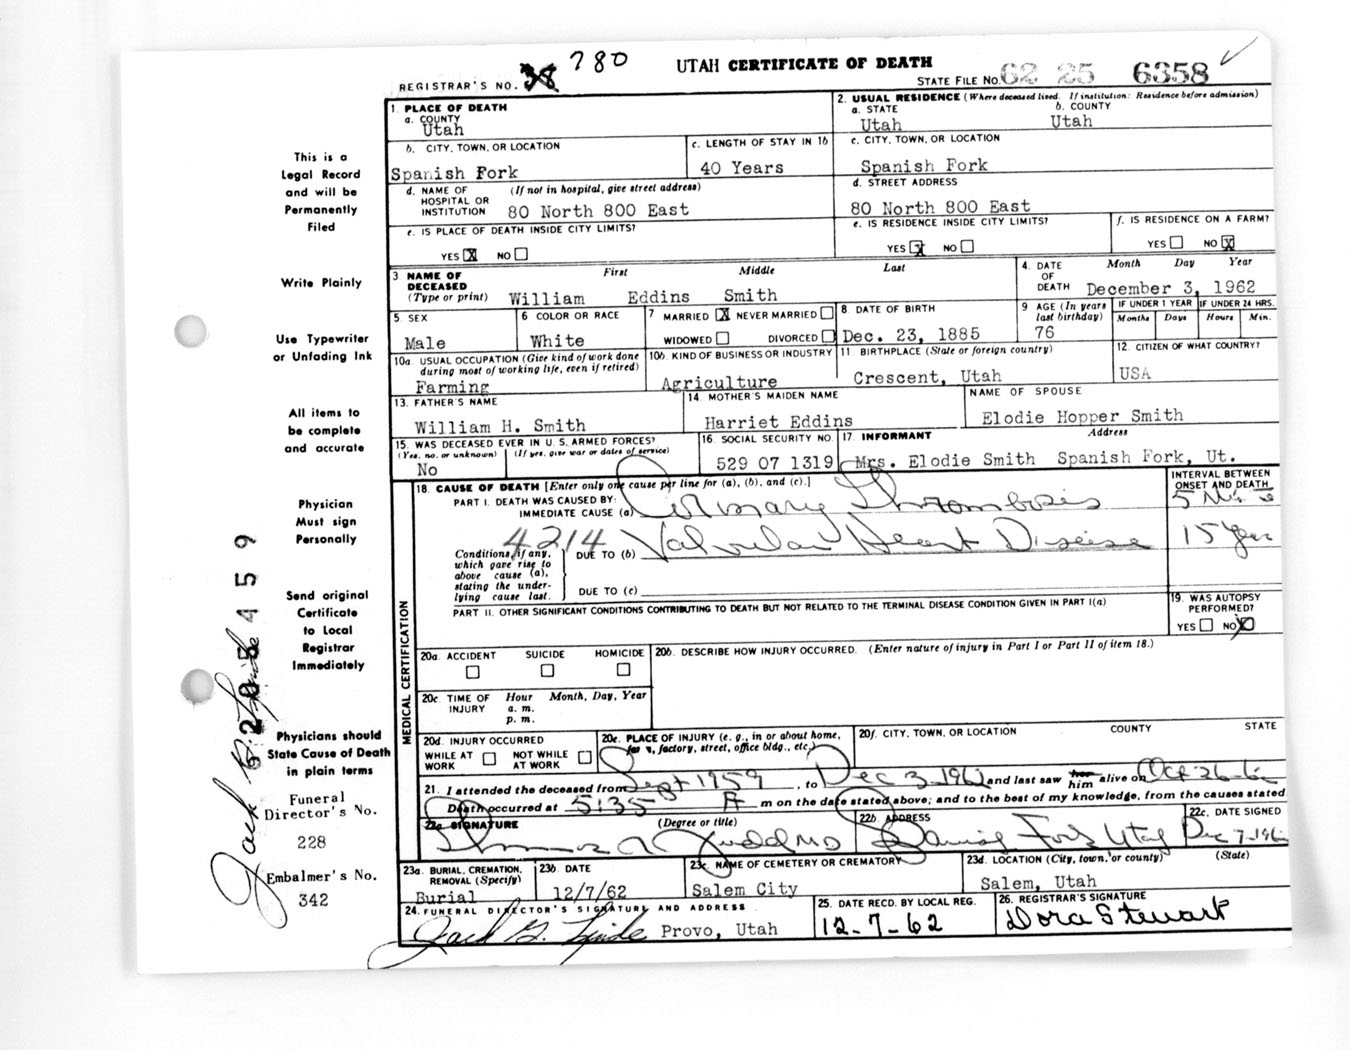 780
UTAH CERTIFICATE OF DEATH
REGISTRAR'S NO. 38
STATE FILE NO. 62 25 6358
1. PLACE OF DEATH
a. COUNTY
Utah
2. USUAL RESIDENCE (Where deceased lived. If institution: Residence before admission)
a. STATE b. COUNTY
Utah Utah
b. CITY, TOWN, OR LOCATION
Spanish Fork
c. LENGTH OF STAY IN 1b
40 Years
c. CITY, TOWN, OR LOCATION
Spanish Fork
d. NAME OF HOSPITAL OR INSTITUTION (If not in hospital, give street address)
80 North 800 East
d. STREET ADDRESS
80 North 800 East
e. IS PLACE OF DEATH INSIDE CITY LIMITS?
YES X NO
e. IS RESIDENCE INSIDE CITY LIMITS?
YES X NO
f. IS RESIDENCE ON A FARM?
YES NO X
3. NAME OF DECEASED (Type or print)
First Middle Last
William Eddins Smith
4. DATE OF DEATH Month Day Year
December 3, 1962
5. SEX
Male
6 COLOR OR RACE
White
7 MARRIED X NEVER MARRIED
WIDOWED DIVORCED
8. DATE OF BIRTH
Dec. 23, 1885
9 AGE (In years last birthday)
76
IF UNDER 1 YEAR IF UNDER 24 HRS.
Months Days Hours Min.
10a. USUAL OCCUPATION (Give kind of work done during most of working life, even if retired)
Farming
10b. KIND OF BUSINESS OR INDUSTRY
Agriculture
11 BIRTHPLACE (State or foreign country)
Crescent, Utah
12. CITIZEN OF WHAT COUNTRY?
USA
13. FATHER'S NAME
William H. Smith
14. MOTHER'S MAIDEN NAME
Harriet Eddins
NAME OF SPOUSE
Elodie Hopper Smith
15. WAS DECEASED EVER IN U.S. ARMED FORCES?
(Yes, no, or unknown) (If yes, give war or dates of service)
No
16. SOCIAL SECURITY NO.
529 07 1319
17. INFORMANT Address
Mrs. Elodie Smith Spanish Fork, Ut.
MEDICAL CERTIFICATION
18. CAUSE OF DEATH [Enter only one cause per line for (a), (b), and (c).]
INTERVAL BETWEEN ONSET AND DEATH
PART I. DEATH WAS CAUSED BY:
IMMEDIATE CAUSE (a) Coronary Thrombosis 5
4214
Conditions, if any, which gave rise to above cause (a), stating the underlying cause last.
DUE TO (b) Valvular Heart Disease 15 Years
DUE TO (c)
PART II. OTHER SIGNIFICANT CONDITIONS CONTRIBUTING TO DEATH BUT NOT RELATED TO THE TERMINAL DISEASE CONDITION GIVEN IN PART I(a)
19. WAS AUTOPSY PERFORMED?
YES NO X
20a. ACCIDENT SUICIDE HOMICIDE
20b. DESCRIBE HOW INJURY OCCURRED. (Enter nature of injury in Part I or Part II of item 18.)
20c. TIME OF INJURY Hour Month, Day, Year
a. m.
p. m.
20d. INJURY OCCURRED
WHILE AT WORK NOT WHILE AT WORK
20e. PLACE OF INJURY (e. g., in or about home, farm, factory, street, office bldg., etc.)
20f. CITY, TOWN, OR LOCATION COUNTY STATE
21. I attended the deceased from Sept 1959, to Dec 3-1962 and last saw her him alive on Oct 26-62
Death occurred at 5:35 A m on the date stated above; and to the best of my knowledge, from the causes stated
22a. SIGNATURE (Degree or title)
Judd MD
22b. ADDRESS
Spanish Fork Utah
22c. DATE SIGNED
Dec 7-1962
23a. BURIAL, CREMATION, REMOVAL (Specify)
Burial
23b. DATE
12/7/62
23c. NAME OF CEMETERY OR CREMATORY
Salem City
23d. LOCATION (City, town, or county) (State)
Salem, Utah
24. FUNERAL DIRECTOR'S SIGNATURE AND ADDRESS
Jack G. Provo, Utah
25. DATE RECD. BY LOCAL REG.
12-7-62
26. REGISTRAR'S SIGNATURE
Dora Stewart
This is a
Legal Record
and will be
Permanently
Filed
Write Plainly
Use Typewriter
or Unfading Ink
All items to
be complete
and accurate
Physician
Must sign
Personally
Send original
Certificate
to Local
Registrar
Immediately
Physicians should
State Cause of Death
in plain terms
Funeral
Director's No.
228
Embalmer's No.
342
Jack